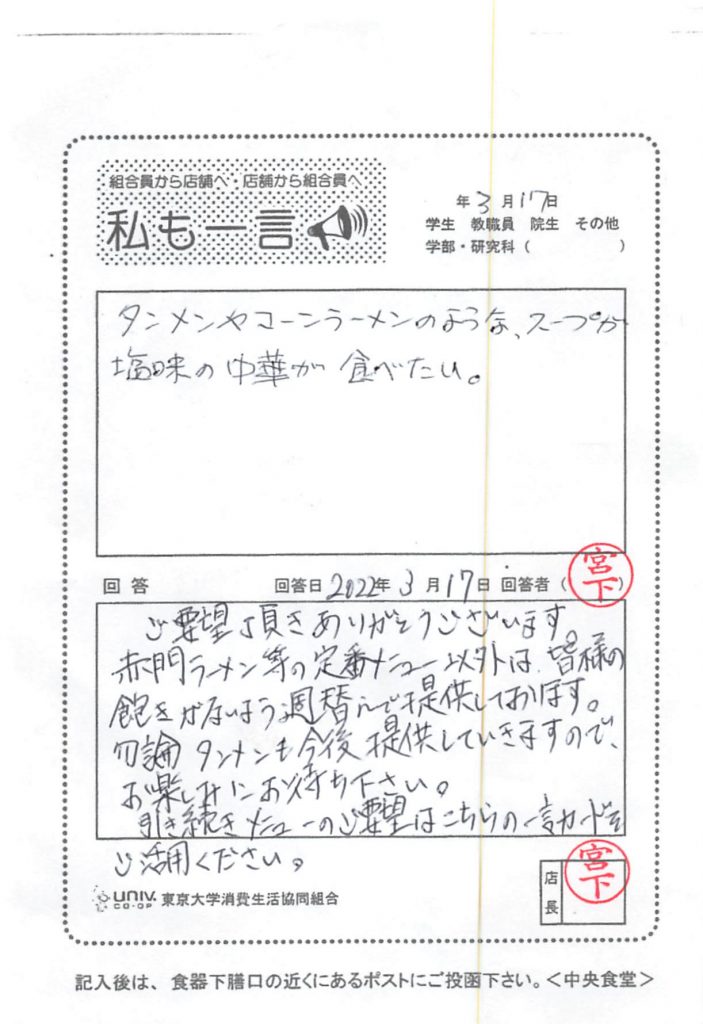 組合員から店舗へ・店舗から組合員へ
私も一言
年3月17日
学生 教職員 院生 その他
学部・研究科( )
タンメンやコーンラーメンのような、スープが
塩味の中華が食べたい。
回答 回答日2022年3月17日 回答者(宮下)
ご要望頂きありがとうございます。
赤門ラーメン等の定番メニュー以外は、皆様の
飽きがないよう週替りで提供しております。
勿論タンメンも今後提供していきますので、
お楽しみにお待ち下さい。
引き続きメニューのご要望はこちらの一言カードを
ご活用ください。
店長 宮下
UNIV. CO-OP 東京大学消費生活協同組合
記入後は、食器下膳口の近くにあるポストにご投函下さい。<中央食堂>